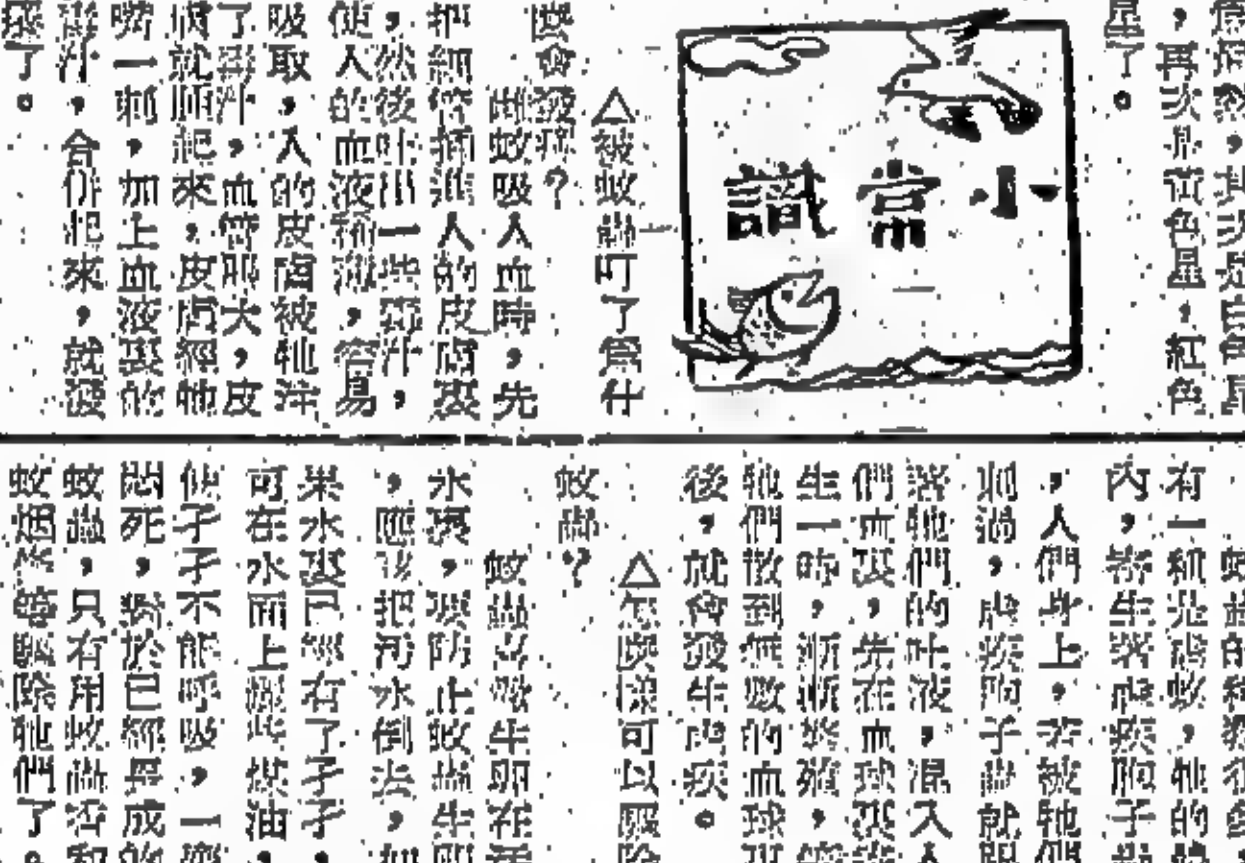 為好然，其次是白色星
，再次是黃色星，紅色
星了。
小常識
△被蚊蟲叮了為什
麼會發痒？
雌蚊吸人血時，先
把細管插進人的皮膚裏
，然後吐出一些毒汁，
使人的血液稀薄，容易
吸取，人的皮膚被牠注
了毒汁，血管耶大，皮
膚就腫起來，皮膚經牠
嘴一刺，加上血液裏的
毒汁，合併起來，就發
痒了。
有一種是瘧蚊，牠的
內，寄生著瘧疾胞子
，人們身上，若被牠們
刺過，瘧疾胞子蟲就
著牠們的吐液，混入人
們血裏，先在血球裏
生一時，漸漸繁殖，
牠們散到無數的血球
後，就會發生瘧疾。
△怎麼樣可以驅除
蚊蟲？
蚊蟲喜歡生卵在
水裏，要防止蚊蟲生卵
，應該把污水倒去，如
果水裏已經有了孑孓，
可在水面上 些煤油，
使孑孓不能呼吸，一齊
悶死，對於已經長成的
蚊蟲，只有用蚊蟲香和
蚊烟 等驅除牠們了。